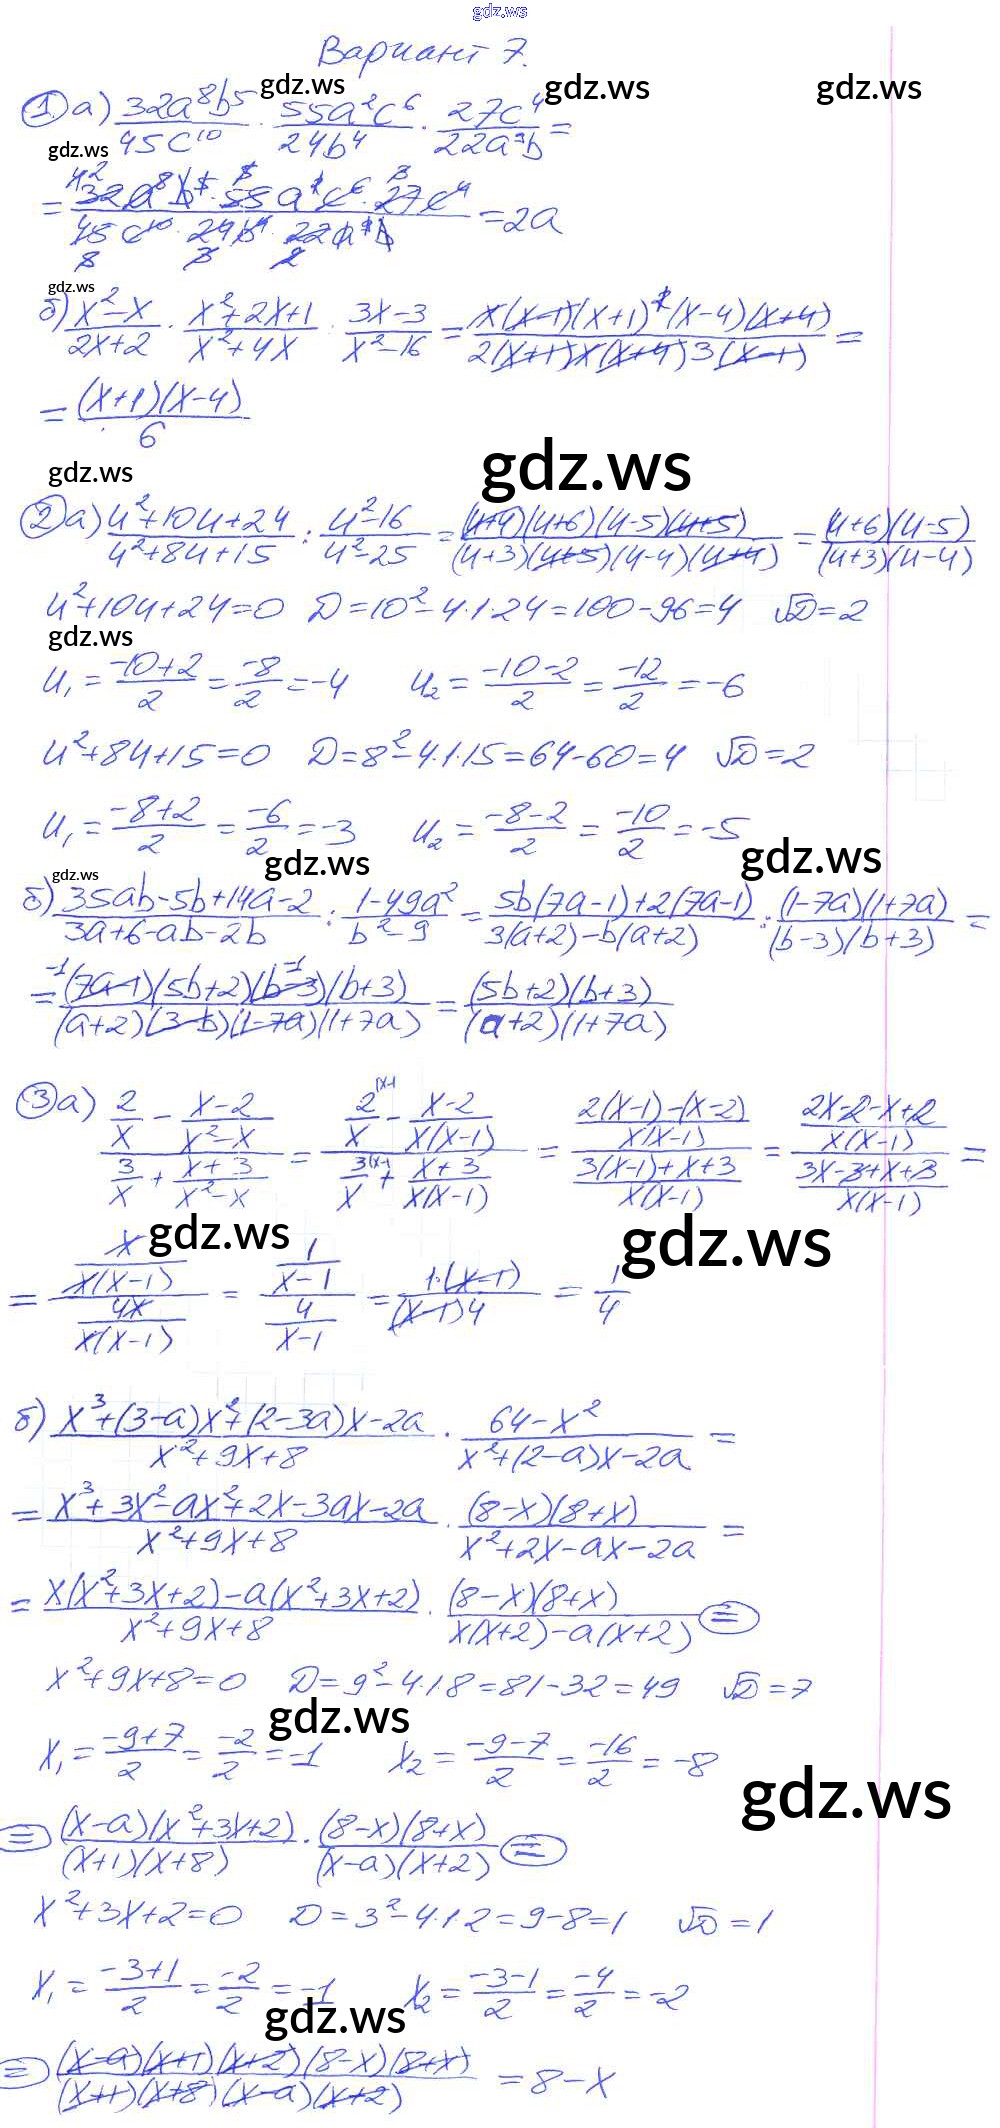 gdz.ws
Вариант 7.
gdz.ws gdz.ws gdz.ws
① а) 32a⁸b⁵/45c¹⁰ · 55a²c⁶/24b⁴ · 27c⁴/22a⁹b =
gdz.ws
= 32a⁸b⁵·55a²c⁶·27c⁴/45c¹⁰·24b⁴·22a⁹b = 2a
gdz.ws
б) x²-x/2x+2 · x²+2x+1/x²+4x : 3x-3/x²-16 = x(x-1)(x+1)²(x-4)(x+4)/2(x+1)x(x+4)3(x-1) =
= (x+1)(x-4)/6
gdz.ws gdz.ws
② а) u²+10u+24/u²+8u+15 : u²-16/u²-25 = (u+4)(u+6)(u-5)(u+5)/(u+3)(u+5)(u-4)(u+4) = (u+6)(u-5)/(u+3)(u-4)
u²+10u+24=0 D=10²-4·1·24=100-96=4 √D=2
gdz.ws
u₁ = -10+2/2 = -8/2 = -4 u₂ = -10-2/2 = -12/2 = -6
u²+8u+15=0 D=8²-4·1·15=64-60=4 √D=2
u₁ = -8+2/2 = -6/2 = -3 u₂ = -8-2/2 = -10/2 = -5
gdz.ws gdz.ws gdz.ws
б) 35ab-5b+14a-2/3a+6-ab-2b : 1-49a²/b²-9 = 5b(7a-1)+2(7a-1)/3(a+2)-b(a+2) : (1-7a)(1+7a)/(b-3)(b+3) =
= -1(7a-1)(5b+2)(b-3)-1(b+3)/(a+2)(3-b)(1-7a)(1+7a) = (5b+2)(b+3)/(a+2)(1+7a)
③ а) 2/x - x-2/x²-x / 3/x + x+3/x²-x = 2/x - x-2/x(x-1) / 3/x + x+3/x(x-1) = 2(x-1)-(x-2)/x(x-1) / 3(x-1)+x+3/x(x-1) = 2x-2-x+2/x(x-1) / 3x-3+x+3/x(x-1) =
gdz.ws gdz.ws
= x/x(x-1) / 4x/x(x-1) = 1/x-1 / 4/x-1 = 1·(x-1)/(x-1)4 = 1/4
б) x³+(3-a)x²+(2-3a)x-2a/x²+9x+8 · 64-x²/x²+(2-a)x-2a =
= x³+3x²-ax²+2x-3ax-2a/x²+9x+8 · (8-x)(8+x)/x²+2x-ax-2a =
= x(x²+3x+2)-a(x²+3x+2)/x²+9x+8 · (8-x)(8+x)/x(x+2)-a(x+2) =
x²+9x+8=0 D=9²-4·1·8=81-32=49 √D=7
gdz.ws
x₁ = -9+7/2 = -2/2 = -1 x₂ = -9-7/2 = -16/2 = -8
gdz.ws
= (x-a)(x²+3x+2)/(x+1)(x+8) · (8-x)(8+x)/(x-a)(x+2) =
x²+3x+2=0 D=3²-4·1·2=9-8=1 √D=1
x₁ = -3+1/2 = -2/2 = -1 x₂ = -3-1/2 = -4/2 = -2
gdz.ws
= (x-a)(x+1)(x+2)(8-x)(8+x)/(x+1)(x+8)(x-a)(x+2) = 8-x